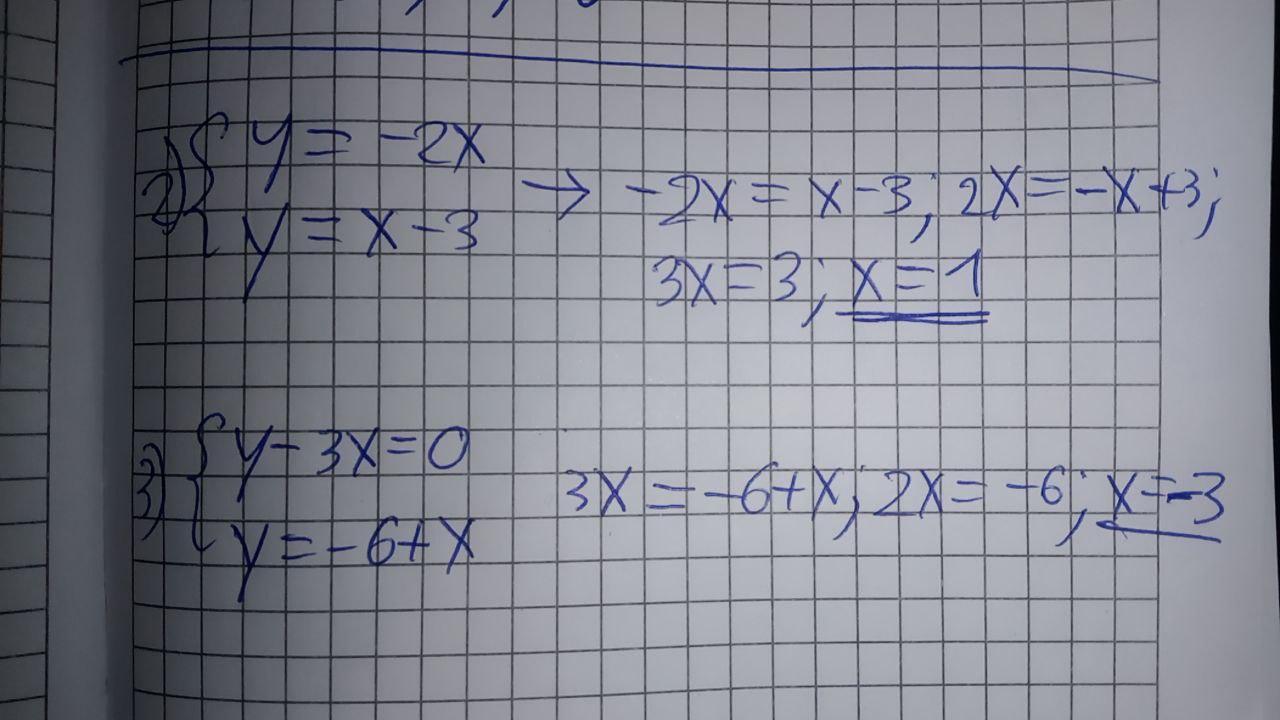 2) { y = -2x
y = x - 3
→ -2x = x - 3; 2x = -x + 3;
3x = 3; x = 1
3) { y - 3x = 0
y = -6 + x
3x = -6 + x; 2x = -6; x = -3